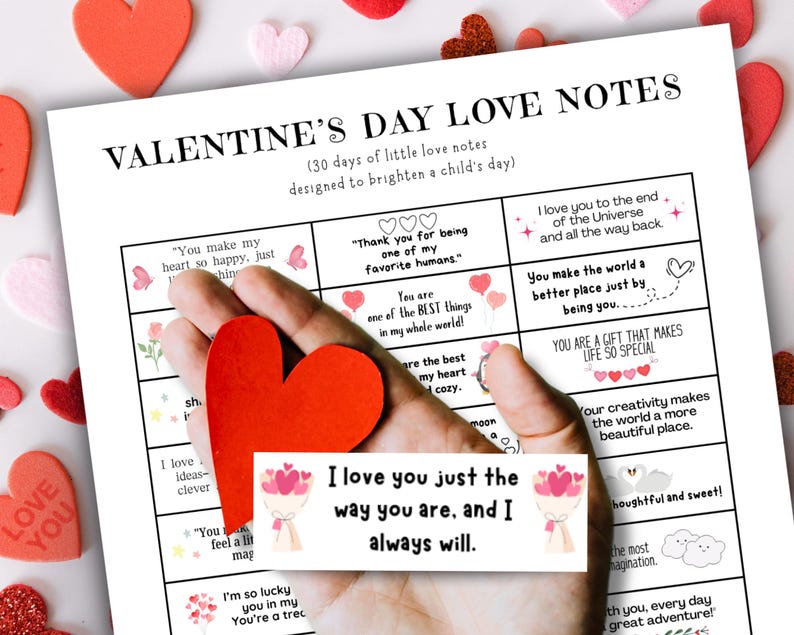 VALENTINE'S DAY LOVE NOTES
(30 days of little love notes
designed to brighten a child's day)
"You make my
heart so happy, just
"Thank you for being
one of my
favorite humans."
I love you to the end
of the Universe
and all the way back.
You are
one of the BEST things
in my whole world!
You make the world a
better place just by
being you.
are the best
my heart
cozy.
YOU ARE A GIFT THAT MAKES
LIFE SO SPECIAL
moon
a
Your creativity makes
the world a more
beautiful place.
I love
ideas-
clever
thoughtful and sweet!
"You
feel a
the most
imagination.
I'm so lucky
you in my
You're a
you, every day
great adventure!"
LOVE
YOU
I love you just the
way you are, and I
always will.